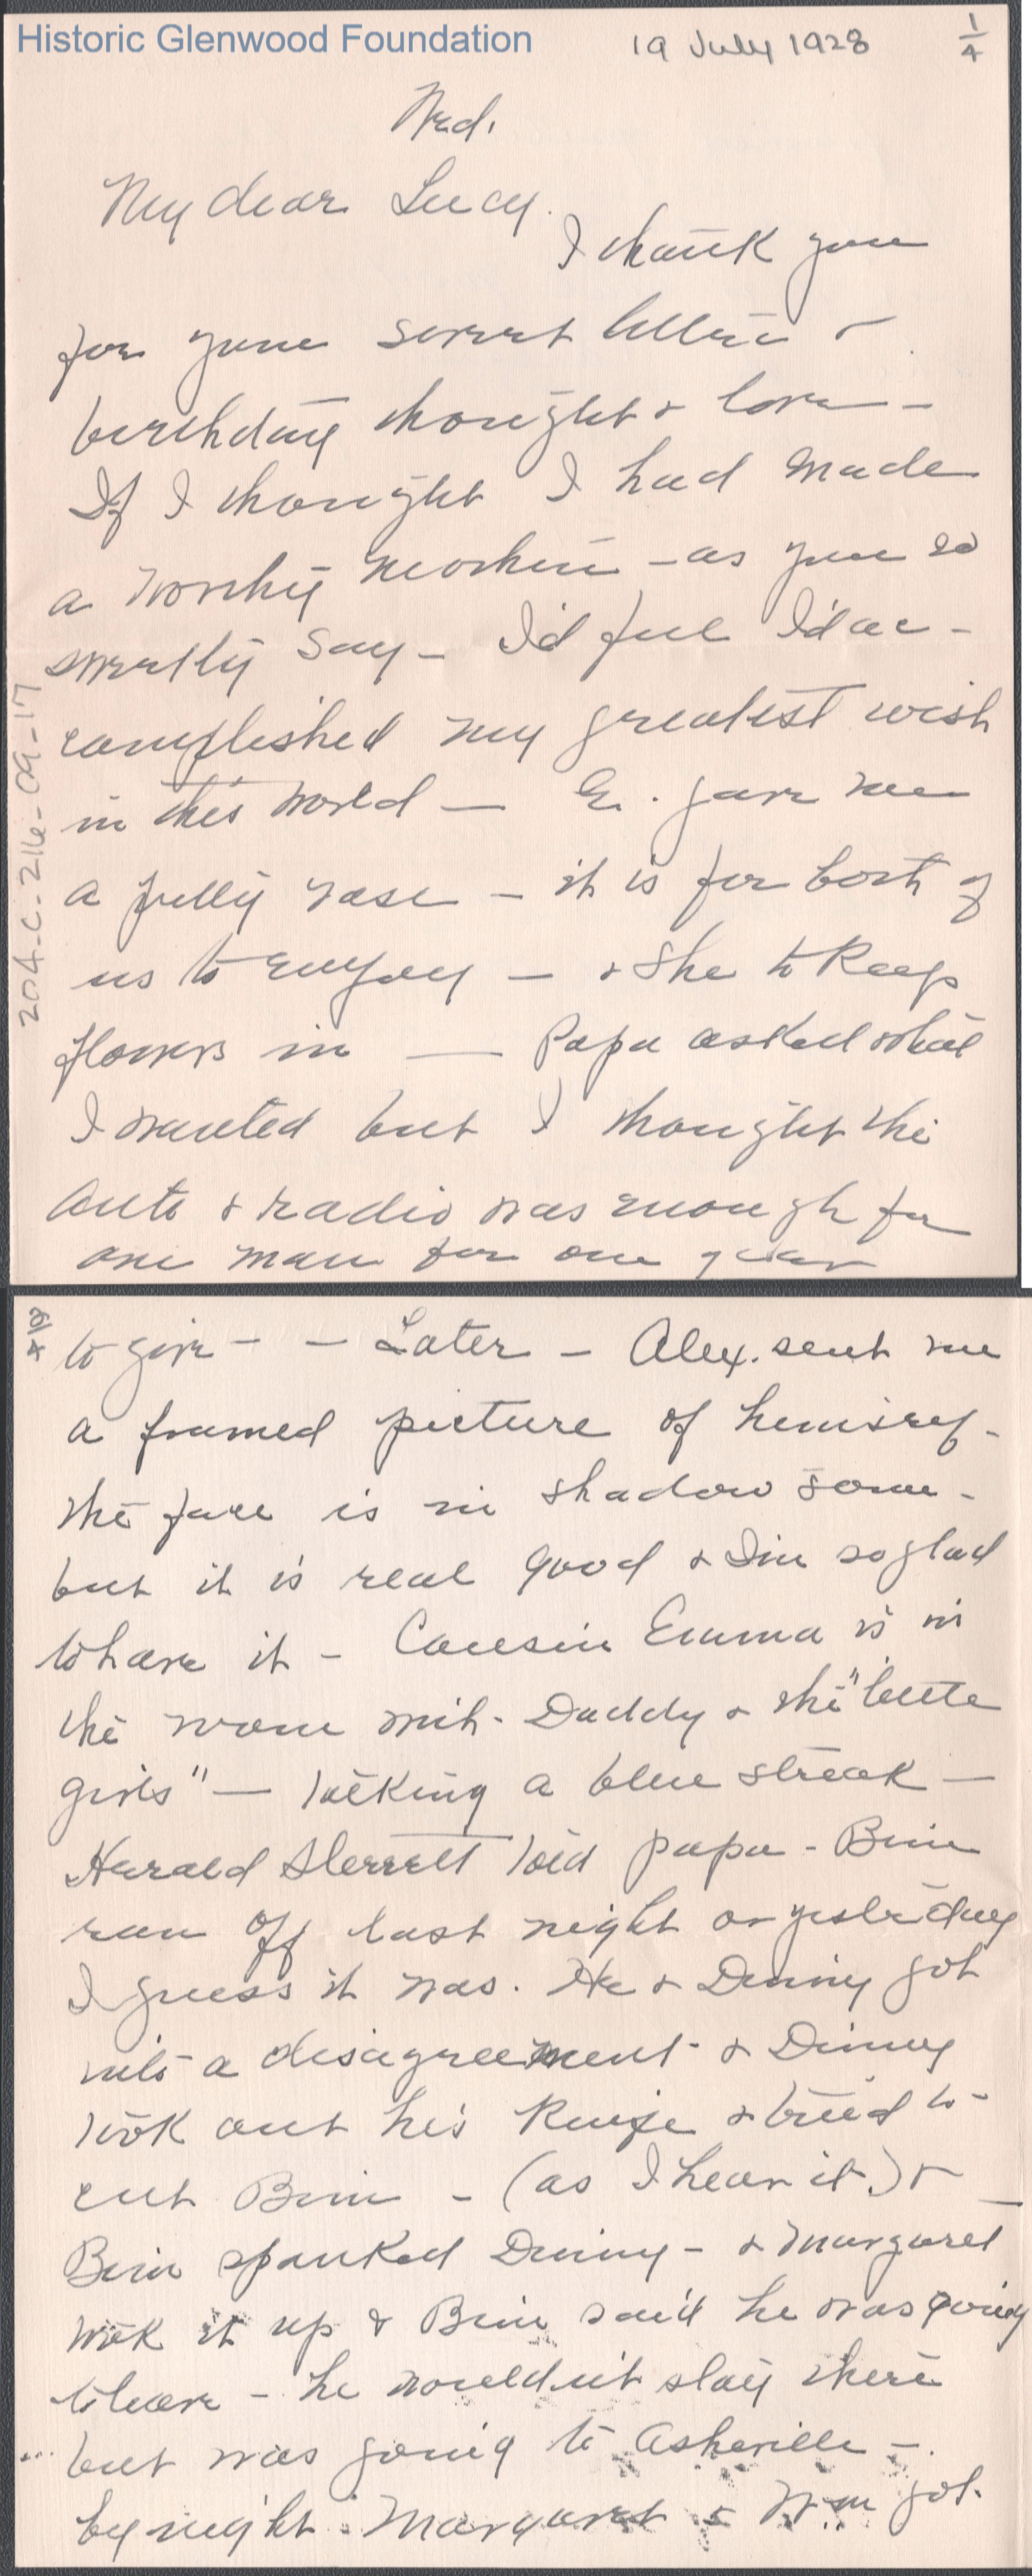 Historic Glenwood Foundation
19 July 1928
1/4
Wed.
My dear Lucy.
I thank you
for your sweet letter &
birthday thought & love -
If I thought I had made
a worthy mother - as you so
sweetly say - I'd feel I'd ac-
complished my greatest wish
in this world - E. gave me
a pretty vase - it is for both of
us to enjoy - & she to keep
flowers in - Papa asked what
I wanted but I thought the
auto & radio was enough for
one man for one year
204-C-216-09-17
2/4
to give - - Later - Alex. sent me
a framed picture of himself -
the face is in shadow some -
but it is real good & I'm so glad
to have it - Cousin Emma is in
the room with Daddy & the "little
girls" - talking a blue streak -
Harald Sterrett told papa - Bim
run off last night or yesterday
I guess it was. He & Dinny got
into a disagreement - & Dinny
took out his knife & tried to
cut Bim - (as I hear it) &
Bim spanked Dinny - & Margaret
took it up & Bim said he was going
to leave - he wouldn't stay there
but was going to Asheville -
by night. Margaret & Wm got